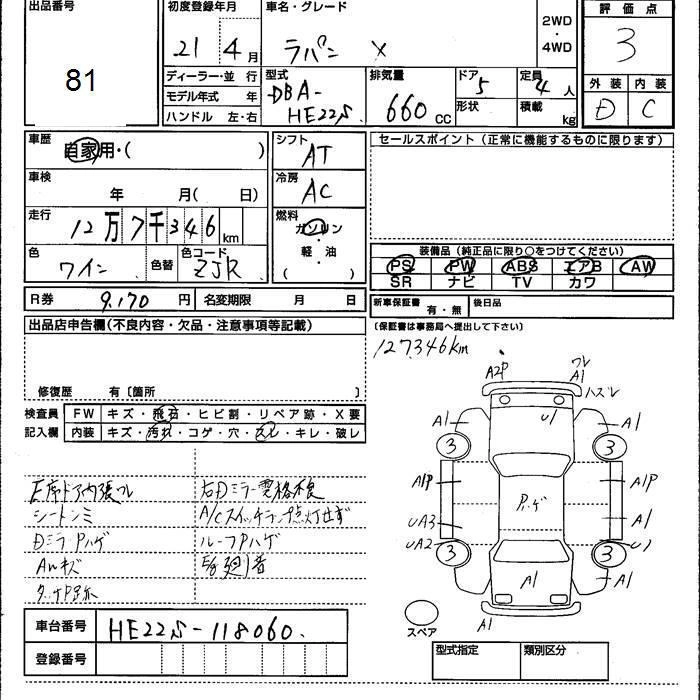 出品番号 初度登録年月 車名・グレード 評価点
81 21 4月 ラパン X 2WD・4WD 3
ディーラー・並行 型式 排気量 ドア 5 定員 4人 外装 内装
モデル年式 年 DBA- 660cc 形状 積載 kg D C
ハンドル 左・右 HE22S
車歴 自家用・( ) シフト AT セールスポイント (正常に機能するものに限ります)
車検 年 月( 日) 冷房 AC
走行 12万7千346km 燃料 ガソリン・軽油 ( )
色 ワイン 色替 色コード ZJR 装備品 (純正品に限り○をつけてください)
PS PW ABS エアB AW
SR ナビ TV カワ
R券 9,170円 名変期限 月 日 新車保証書 有・無 後日品
出品店申告欄(不良内容・欠品・注意事項等記載) (保証書は事務局へ提出して下さい)
127,346km
修復歴 有〔箇所 〕
検査員 FW キズ・飛石・ヒビ割・リペア跡・X要
記入欄 内装 キズ・汚れ・コゲ・穴・スレ・キレ・破レ
A2P ワレ
A1 ハズレ
A1 U1 A1
3 3
A1P Pハゲ A1P
UA3 A1
UA2 3 3 U1
A1 A1 A1
A1
スペア
右Dミラー電格不良
シートシミ A/Cスイッチランプ点灯せず
DミラPハゲ ルーフPハゲ
AWキズ
車台番号 HE22S-118060
登録番号 型式指定 類別区分